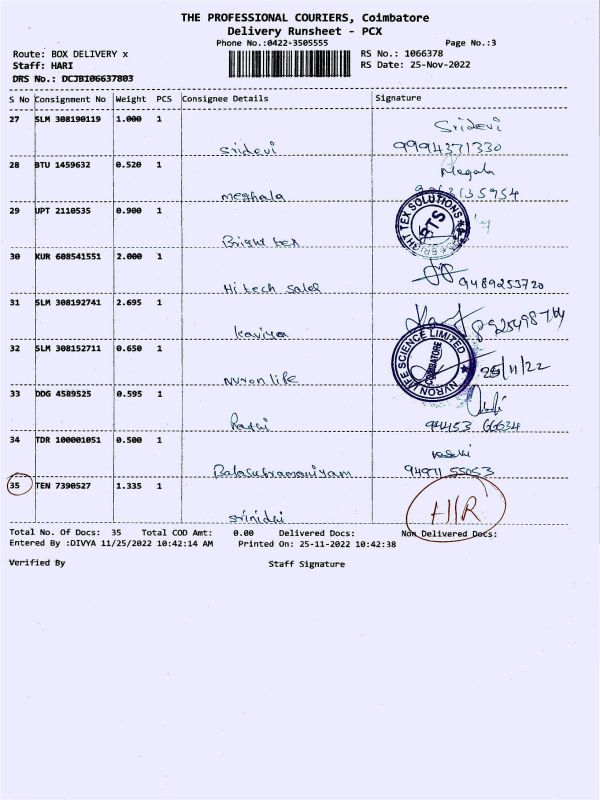 THE PROFESSIONAL COURIERS, Coimbatore
Delivery Runsheet - PCX
Phone No.:0422-3505555 Page No.:3
Route: BOX DELIVERY x RS No.: 1066378
Staff: HARI RS Date: 25-Nov-2022
DRS No.: DCJB106637803
S No Consignment No Weight PCS Consignee Details Signature
27 SLM 308190119 1.000 1 Sridevi
sridevi 9994371330
28 BTU 1459632 0.520 1 Megala
meghala
29 UPT 2110535 0.900 1 BRIGHT TEX SOLUTIONS BTS
Bright tex
30 KUR 608541551 2.000 1
Hitech sales 9489253720
31 SLM 308192741 2.695 1
kaviya
32 SLM 308152711 0.650 1 NVRON LIFE SCIENCE LIMITED COIMBATORE 25/11/22
Nvron life
33 DDG 4589525 0.595 1
94453 66634
34 TDR 100001051 0.500 1
Balasubramaniyam
35 TEN 7390527 1.335 1
srinidhi
Total No. Of Docs: 35 Total COD Amt: 0.00 Delivered Docs: Non Delivered Docs:
Entered By :DIVYA 11/25/2022 10:42:14 AM Printed On: 25-11-2022 10:42:38
Verified By Staff Signature